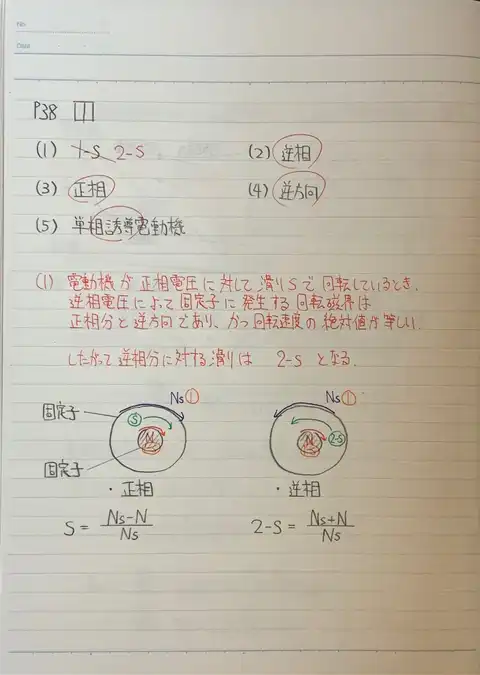 No.
Date
P38 1
(1) 1-S 2-S (2) 逆相
(3) 正相 (4) 逆方向
(5) 単相誘導電動機
(1) 電動機が正相電圧に対して滑りSで回転しているとき、
逆相電圧によって固定子に発生する回転磁界は
正相分と逆方向であり、かつ回転速度の絶対値が等しい.
したがって逆相分に対する滑りは 2-S となる.
Ns① Ns①
固定子 S 2-S
N N
固定子
・正相 ・逆相
S = Ns-N / Ns 2-S = Ns+N / Ns